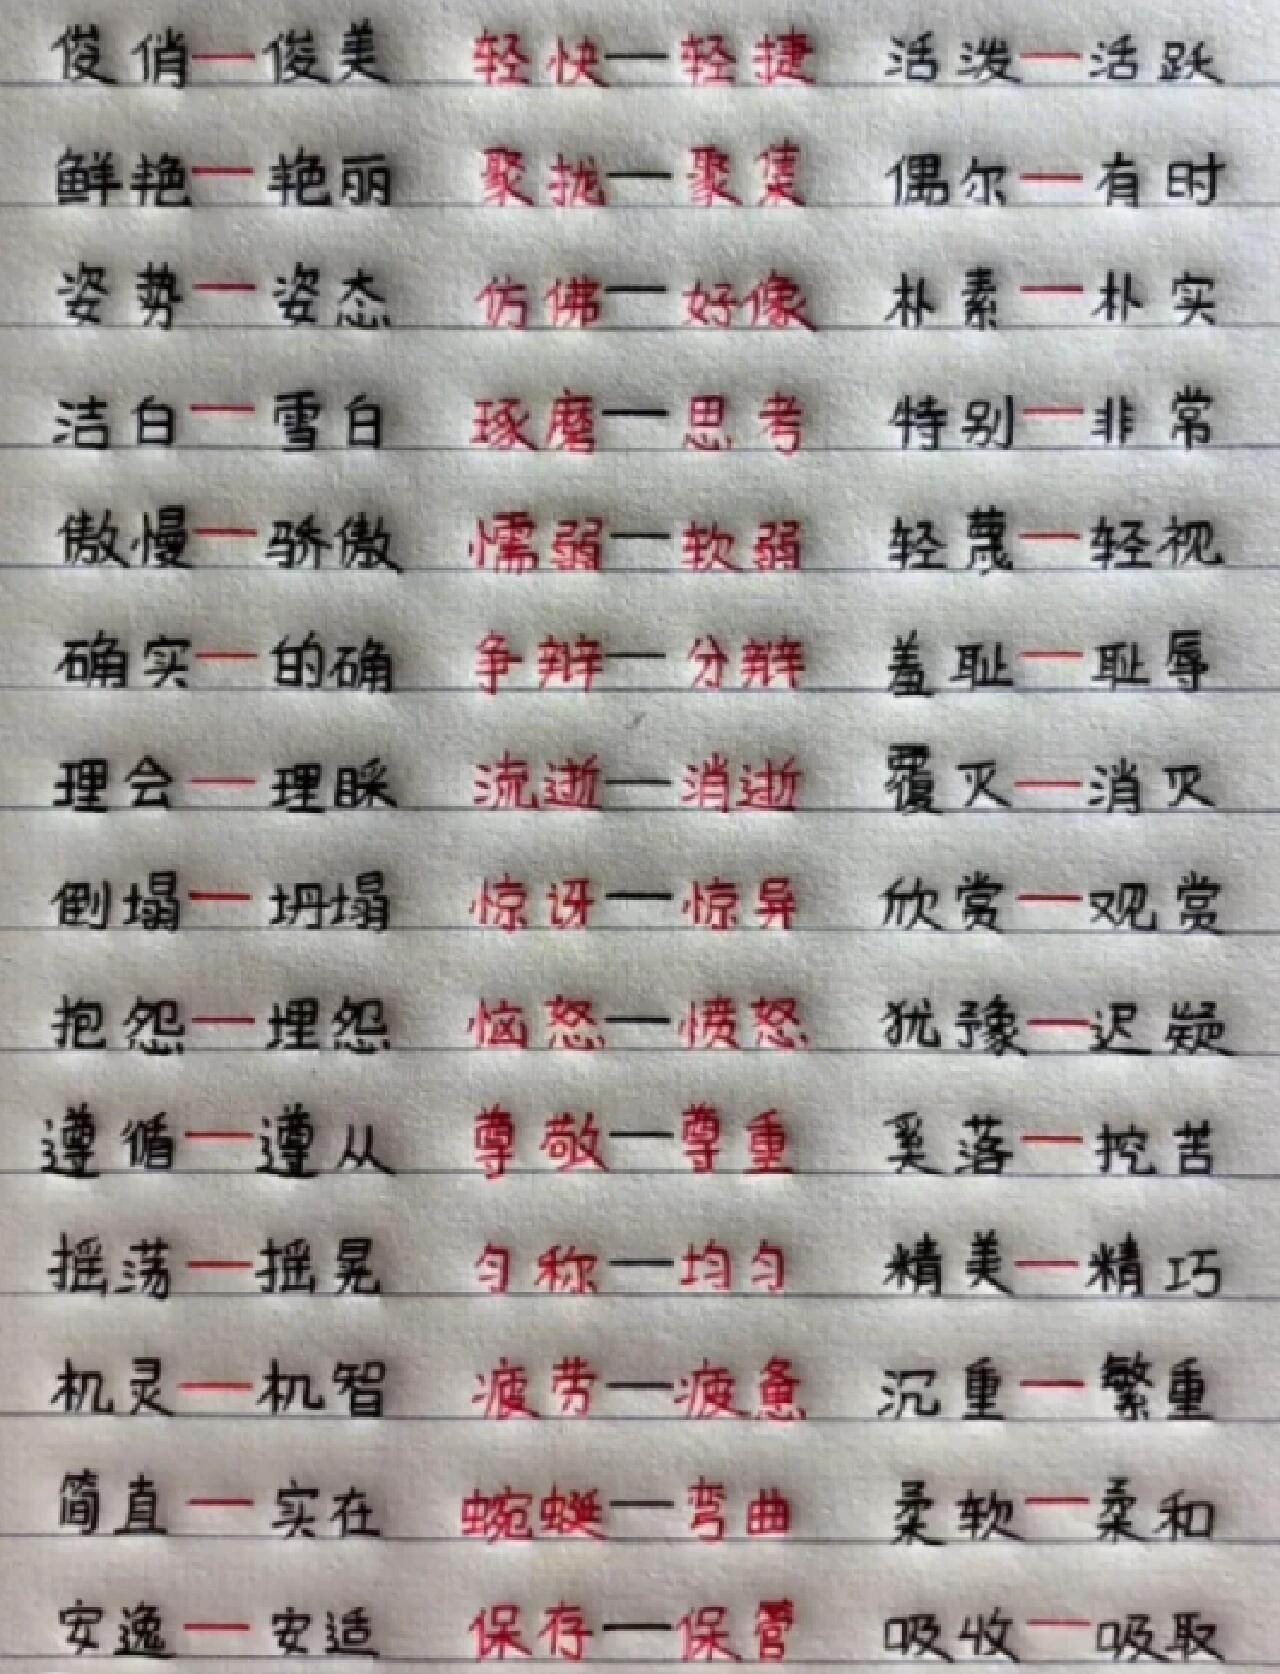 俊俏—俊美 轻快—轻捷 活泼—活跃
鲜艳—艳丽 聚拢—聚集 偶尔—有时
姿势—姿态 仿佛—好像 朴素—朴实
洁白—雪白 琢磨—思考 特别—非常
傲慢—骄傲 懦弱—软弱 轻蔑—轻视
确实—的确 争辩—分辩 羞耻—耻辱
理会—理睬 流逝—消逝 覆灭—消灭
倒塌—坍塌 惊讶—惊异 欣赏—观赏
抱怨—埋怨 恼怒—愤怒 犹豫—迟疑
遵循—遵从 尊敬—尊重 奚落—挖苦
摇荡—摇晃 匀称—均匀 精美—精巧
机灵—机智 疲劳—疲惫 沉重—繁重
简直—实在 蜿蜒—弯曲 柔软—柔和
安逸—安适 保存—保管 吸收—吸取